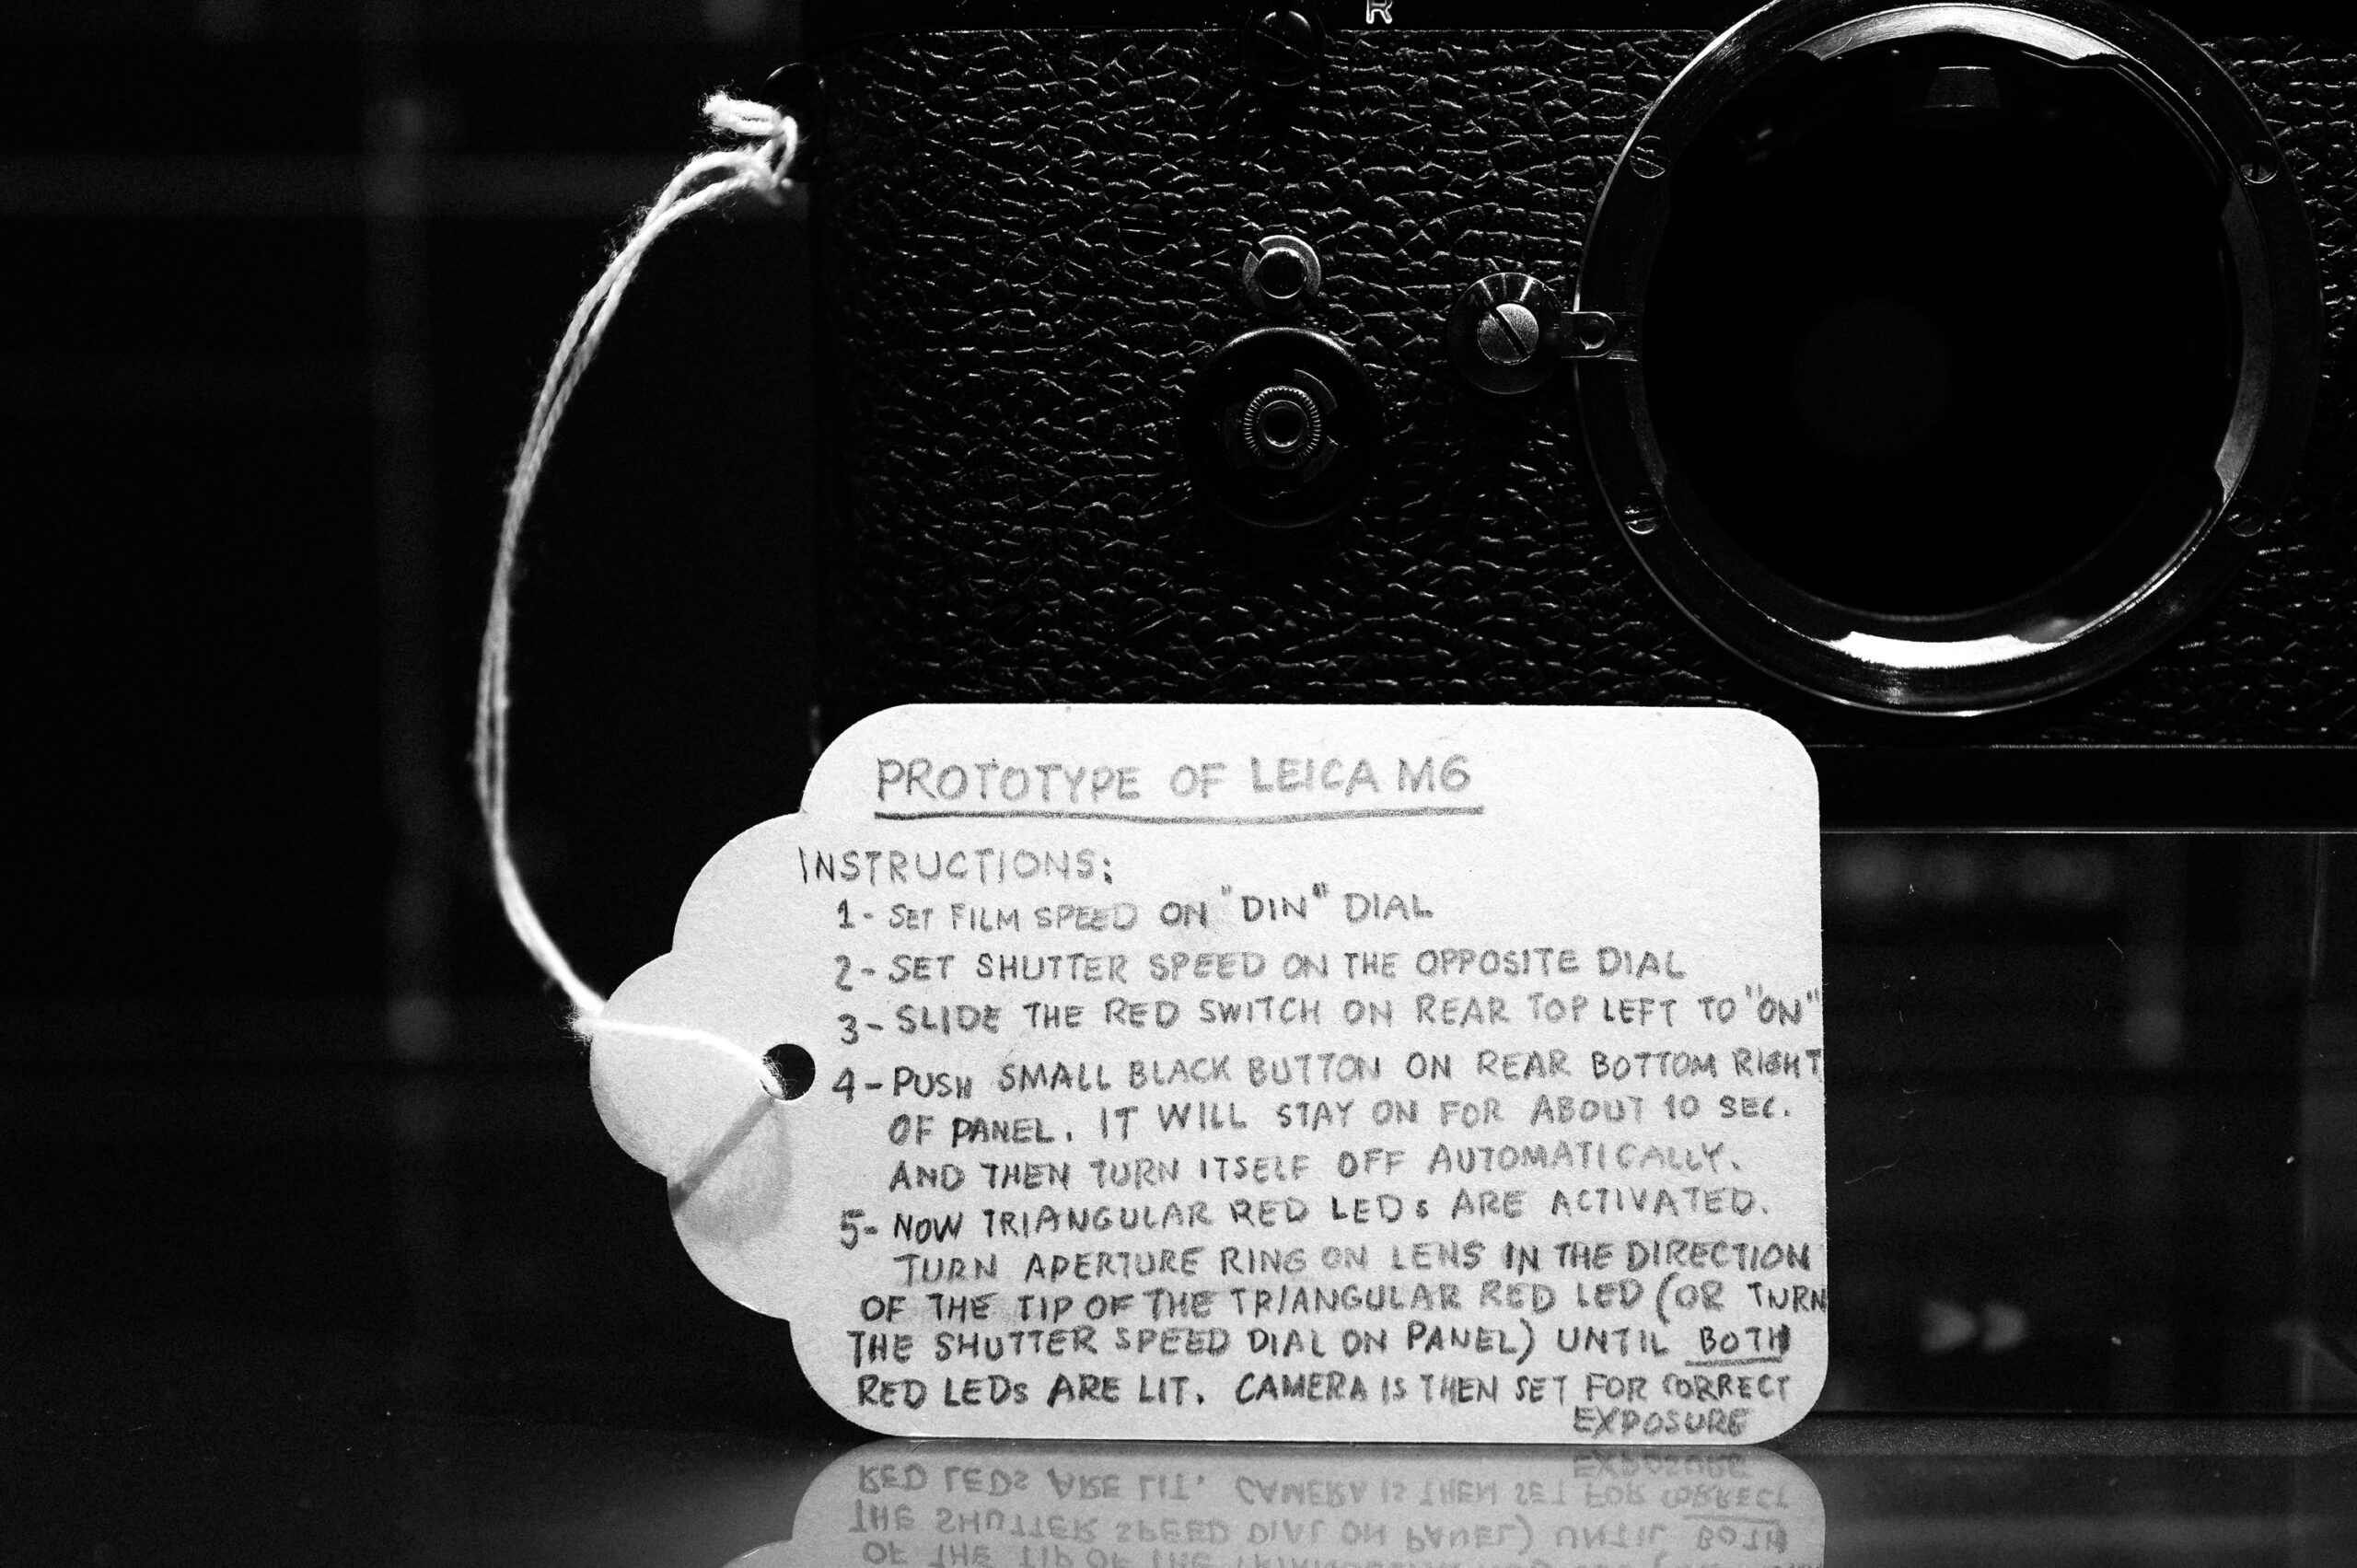 R
PROTOTYPE OF LEICA M6
INSTRUCTIONS:
1- SET FILM SPEED ON "DIN" DIAL
2- SET SHUTTER SPEED ON THE OPPOSITE DIAL
3- SLIDE THE RED SWITCH ON REAR TOP LEFT TO "ON"
4- PUSH SMALL BLACK BUTTON ON REAR BOTTOM RIGHT
OF PANEL. IT WILL STAY ON FOR ABOUT 10 SEC.
AND THEN TURN ITSELF OFF AUTOMATICALLY.
5- NOW TRIANGULAR RED LEDs ARE ACTIVATED.
TURN APERTURE RING ON LENS IN THE DIRECTION
OF THE TIP OF THE TRIANGULAR RED LED (OR TURN
THE SHUTTER SPEED DIAL ON PANEL) UNTIL BOTH
RED LEDs ARE LIT. CAMERA IS THEN SET FOR CORRECT
EXPOSURE